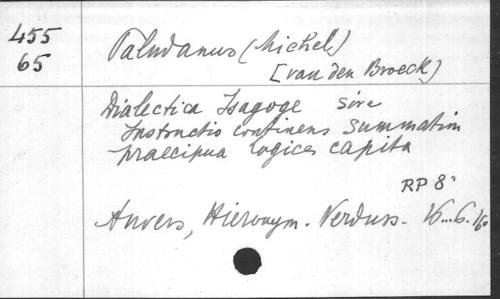 455
65
Paludanus (Michel)
[van den Broeck)
Dialectica Isagoge sive
Instructio continens summatim
praecipua logices capita
RP 8°
Anvers, Hieronym. Verduss.